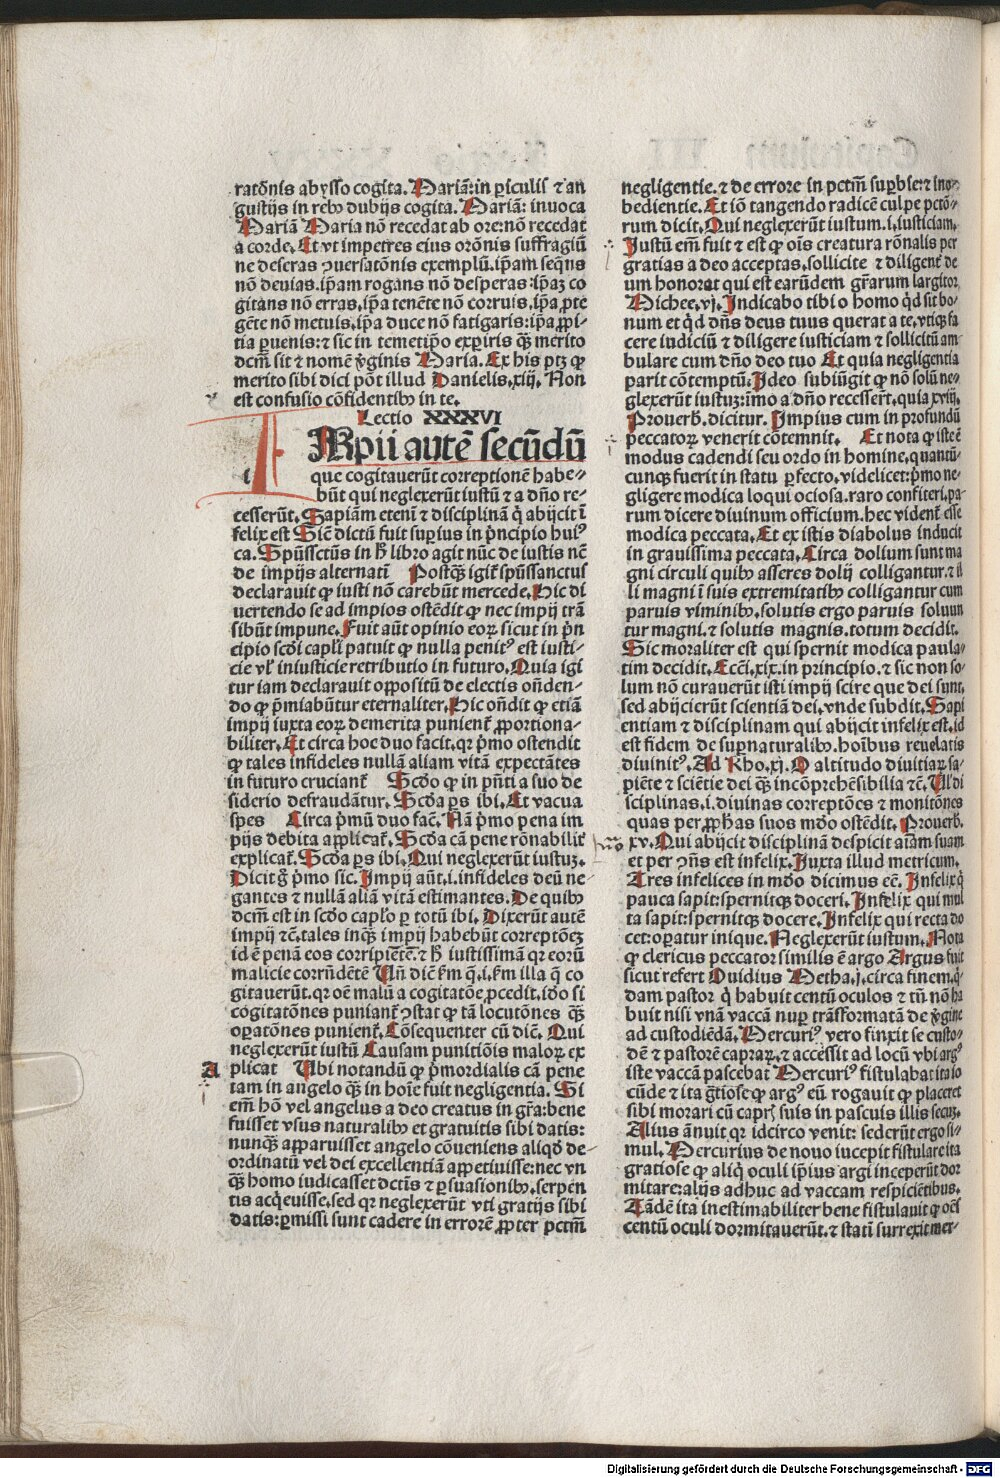 ratõnis abysso cogita. Mariã: in ꝑiculis ⁊ an
gustijs in rebꝰ dubijs cogita. Mariã: inuoca
Mariã Maria nõ recedat ab ore: nõ recedat
a corde. Et vt impetres eius orõnis suffragiũ
ne deseras ↄuersatõnis exemplũ. ip̃am seq̃ns
nõ deuias. ip̃am rogans nõ desperas: ip̃aꝫ co
gitans nõ erras. ip̃a tenẽte nõ corruis. ip̃a ꝓte
gẽte nõ metuis. ip̃a duce nõ fatigaris: ip̃a ꝓpi-
tia ꝑuenis: ⁊ sic in temetip̃o exꝑiris q̃ꝫ merito
dcm̃ sit ⁊ nomẽ ṽginis Maria. Ex his ptꝫ ꝙ
merito sibi dici põt illud Danielis. xiij. Non
est confusio cõfidentibꝰ in te.
Lectio XXXVI
IMpii autẽ secũdũ
que cogitauerũt correptionẽ habe-
bũt qui neglexerũt iustũ ⁊ a dño re-
cesserũt. Sapiãm etenĩ ⁊ disciplinã q̃ abijcit ĩ
felix est Sic̃ dictũ fuit suꝑius in p̃ncipio huiꝰ
ca. Spũssctũs in h̃ libro agit nũc de iustis nẽ
de impijs alternatĩ Postq̃ꝫ igit̃ spũssanctus
declarauit ꝙ iusti nõ carebũt mercede. Hic di
uertendo se ad impios ostẽdit ꝙ nec impij trã
sibũt impune. Fuit aũt opinio eoꝝ sicut in p̃n
cipio scd̃i capl̃i patuit ꝙ nulla penitꝰ est iusti-
cie vl̃ iniusticie retributio in futuro. Quia igi
tur iam declarauit oppositũ de electis oñden-
do ꝙ p̃miabũtur eternaliter. Hic oñdit ꝙ etiã
impij iuxta eoꝝ demerita punient̃ ꝓportiona-
biliter. Et circa hoc duo facit. qꝛ p̃mo ostendit
ꝙ tales infideles nullã aliam vitã expectãtes
in futuro cruciant̃ Scd̃o ꝙ in pñti a suo de
siderio defraudãtur. Scd̃a ꝑs ibi. Et vacua
spes Circa p̃mũ duo fac̃. Nã p̃mo pena im
pijs debita applicat̃. Scd̃a cã pene rõnabilit̃
explicat̃. Scd̃a ꝑs ibi. Qui neglexerũt iustuꝫ.
Dicit g̃ p̃mo sic. Impij aũt. i. infideles deũ ne-
gantes ⁊ nullã aliã vitã estimantes. De quibꝰ
dcm̃ est in scd̃o capl̃o ꝑ totũ ibi. Dixerũt autẽ
impij ⁊c̃. tales inq̃ꝫ impij habebũt correptõeꝫ
id ẽ penã eos corripiẽtẽ. ⁊ h̃ iustissimã qꝛ eorũ
malicie corrñdẽtẽ Uñ dic̃ km̃ q̃. i. km̃ illa q̃ co
gitauerũt. qꝛ oẽ malũ a cogitatõe ꝓcedit. id̃o si
cogitatõnes puniant̃ ↄstat ꝙ tã locutõnes q̃ꝫ
oꝑatõnes punient̃. Cõsequenter cũ dic̃. Qui
neglexerũt iustũ Causam punitiõis maloꝝ ex
A plicat Ubi notandũ ꝙ p̃mordialis cã pene
tam in angelo q̃ꝫ in hoĩe fuit negligentia. Si
em̃ hõ vel angelus a deo creatus in gr̃a: bene
fuisset vsus naturalibꝰ et gratuitis sibi datis:
nunq̃ꝫ apparuisset angelo cõueniens aliqd̃ de-
ordinatũ vel dei excellentiã appetiuisse: nec vn
q̃ꝫ homo iudicasset dctĩs ⁊ ꝑsuasionibꝰ. serpen
tis acq̃euisse. sed qꝛ neglexerũt vti gratijs sibi
datis: ꝑmissi sunt cadere in errorẽ ꝓpter pctm̃
negligentie. ⁊ de errore in pctm̃ suꝑbie: ⁊ ino-
bedientie. Et iõ tangendo radicẽ culpe pctõ-
rum dicit. Qui neglexerũt iustum. i. iusticiam.
Iustũ em̃ fuit ⁊ est ꝙ oĩs creatura rõnalis per
gratias a deo acceptas. sollicite ⁊ diligent̃ de
um honorat qui est earũdem gr̃arum largitor
Michee. vj. Indicabo tibi o homo qd̃ sit bo-
num et qd̃ dñs deus tuus querat a te. vtiqꝫ fa
cere iudiciũ ⁊ diligere iusticiam ⁊ sollicitũ am-
bulare cum dño deo tuo Et quia negligentia
parit cõtemptũ. Ideo subiũgit ꝙ nõ solũ ne-
glexerũt iustuꝫ: ĩmo a dño recessert̃. quia xviij.
Prouerb̃. dicitur. Impius cum in profundũ
peccatoꝝ venerit cõtemnit. Et nota ꝙ istẽ
modus cadendi seu ordo in homine. quantũ
cunqꝫ fuerit in statu ꝑfecto. videlicet: p̃mo ne-
gligere modica loqui ociosa. raro confiteri. pa-
rum dicere diuinum officium. hec vident̃ esse
modica peccata. Et ex istis diabolus inducit
in grauissima peccata. Circa dolium sunt ma
gni circuli quibꝰ asseres dolij colligantur. ⁊ il
li magni ĩ suis extremitatibꝰ colligantur cum
paruis viminibꝰ. solutis ergo paruis soluun
tur magni. ⁊ solutis magnis. totum decidit.
Sic moraliter est qui spernit modica paula-
tim decidit. Ecc̃i. xix. in principio. ⁊ sic non so-
lum nõ curauerũt isti impij scire que dei sunt.
sed abijcierũt scientiã dei. vnde subdit. Sapi
entiam ⁊ disciplinam qui abijcit infelix est. id
est fidem de supnaturalibꝰ. hoĩbus reuelatis
diuinitꝰ. Ad Rho. xj. O altitudo diuitiaꝝ sa-
piẽte ⁊ sciẽtie dei q̃ꝫ incõprehẽsibilia ⁊c̃. Ul̃ di
sciplinas. i. diuinas correptões ⁊ monitões
quas per ꝓphãs suos mõdo ostẽdit. Prouerb̃.
xv. Qui abijcit disciplinã despicit aĩam suam
et per ↄñs est infelix. Juxta illud metricum.
Tres infelices in mõdo dicimus eẽ. Infelix q̃
pauca sapit: spernitqꝫ doceri. Infelix qui mul
ta sapit: spernitqꝫ docere. Infelix qui recta do
cet: oꝑatur inique. Neglexerũt iustum. Nota
ꝙ clericus peccator similis ẽ argo Argus fuit
sicut refert Ouidius Metha. j. circa finem. q̃-
dam pastor q̃ habuit centũ oculos ⁊ tñ nõ ha
buit nisi vnã vaccã nuꝑ trãsformatã de ṽgine
ad custodiẽdã. Mercuriꝰ vero finxit se custo-
dẽ ⁊ pastorẽ capraꝝ. ⁊ accessit ad locũ vbi argꝰ
iste vaccã pascebat Mercuriꝰ fistulabat ita io
cũde ⁊ ita grõse ꝙ argꝰ eũ rogauit ꝙ placeret
sibi morari cũ capr̃ suis in pascuis illis secuꝫ.
Alius ãnuit qꝛ idcirco venit: sederũt ergo si-
mul. Mercurius de novo incepit fistulare ita
gratiose ꝙ aliq̃ oculi ip̃ius argi inceperũt dor
mitare: alijs adhuc ad vaccam respiciẽtibus.
Tãdẽ ita inestimabiliter bene fistulauit ꝙ oẽs
centũ oculi dormitauerũt. ⁊ statĩ surrexit mer-
Digitalisierung gefördert durch die Deutsche Forschungsgemeinschaft - DFG